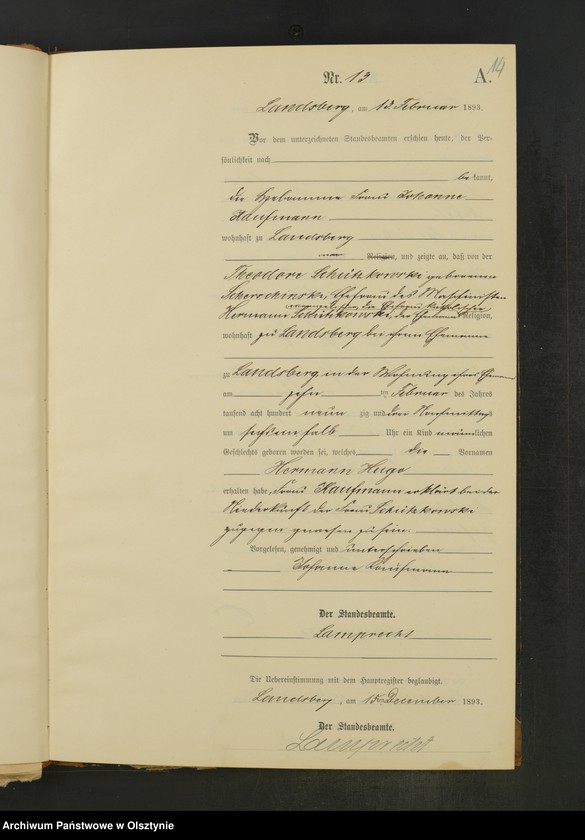 14
Nr. 13 A.
Landsberg, am 15. Februar 1893.
Vor dem unterzeichneten Standesbeamten erschien heute, der Per-
sönlichkeit nach
bekannt,
die Hebamme Frau Johanne
Kaufmann
wohnhaft zu Landsberg
Religion, und zeigte an, daß von der
Theodore Schutzkowski geborenen
Ehefrau des Maschinisten
Hermann Schutzkowski, der Ehemann evangelischer, der Ehefrau katholischer Religion,
wohnhaft zu Landsberg bei ihrem Ehemanne
zu Landsberg, in der Wohnung ihres
am zehn ten Februar des Jahres
tausend acht hundert neun zig und drei Nachmittags
um sechseinhalb Uhr ein Kind männlichen
Geschlechts geboren worden sei, welches die Vornamen
Hermann Hugo
erhalten habe. Frau Kaufmann erklärt bei der
Niederkunft der Frau Schutzkowski
zugegen gewesen zu sein.
Vorgelesen, genehmigt und unterschrieben
Johanne Kaufmann
Der Standesbeamte.
Lamprecht
Die Uebereinstimmung mit dem Hauptregister beglaubigt.
Landsberg, am December 1893.
Der Standesbeamte.
Lamprecht
Archiwum Państwowe w Olsztynie